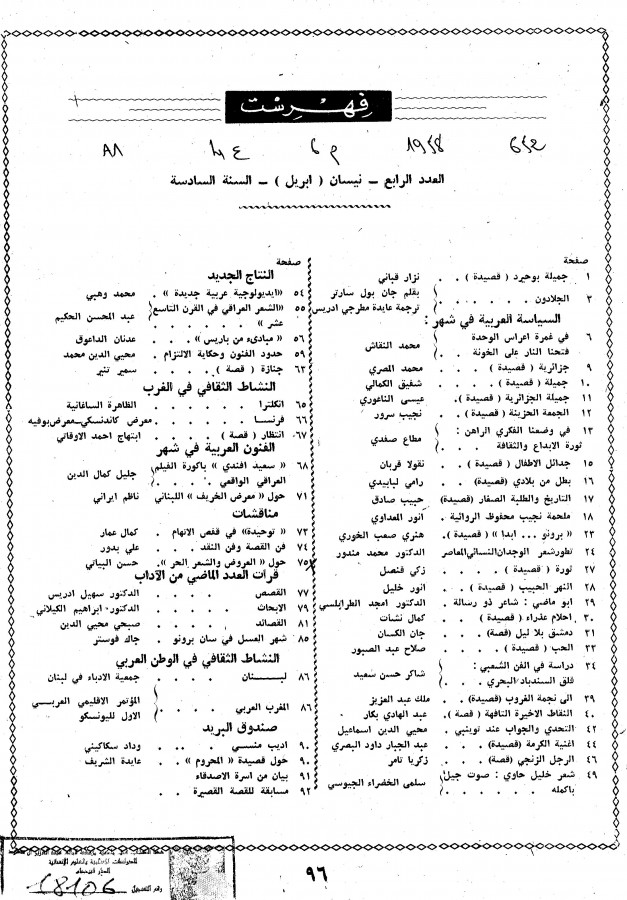 فهرست
العدد الرابع ــ نيسان ( ابريل ) ــ السنة السادسة
صفحة
١ جميلة بوحيرد ( قصيدة ) . . نزار قباني
٣ الجلادون . . . . . بقلم جان بول سارتر
ترجمة عايدة مطرجي ادريس
السياسة العربية في شهر :
٦ في غمرة اعراس الوحدة
فتحنا النار على الخونة محمد النقاش
٩ جزائرية ( قصيدة ) . . محمد المصري
١٠ جميلة ( قصيدة ) . . . شفيق الكمالي
١١ جميلة الجزائرية ( قصيدة ) . عيسى الناعوري
١٢ الجمعة الحزينة ( قصيدة ) . . نجيب سرور
١٣ في وضعنا الفكري الراهن :
ثورة الابداع والثقافة . . مطاع صفدي
١٥ جدائل الاطفال ( قصيدة ) . . نقولا قربان
١٦ بطل من بلادي (قصيدة) . . رامي لبابيدي
١٧ التاريخ والطلبة الصغار (قصيدة) حبيب صادق
١٨ ملحمة نجيب محفوظ الروائية . انور المعداوي
٢٣ « برونو ... ابدا » ( قصيدة ) . هنري صعب الخوري
٢٤ تطور شعر الوجدان النسائي المعاصر الدكتور محمد مندور
٢٧ ثورة ( قصيدة ) . . . زكي قنصل
٢٨ النهر الحبيب ( قصيدة ) . . انور خليل
٢٩ ابو ماضي : شاعر ذو رسالة . الدكتور امجد الطرابلسي
٣٠ احلام عذراء ( قصيدة ) . . كمال نشات
٣١ دمشق بلا ليل (قصة) . . جان الكسان
٣٣ الحب ( قصيدة ) . . . صلاح عبد الصبور
٣٤ دراسة في الفن الشعبي :
قلق السندباد البحري . . شاكر حسن سعيد
٣٩ الى نجمة الغروب (قصيدة) . ملك عبد العزيز
٤٠ النقاط الاخيرة التافهة ( قصة ) . عبد الهادي بكار
٤٢ التحدي والجواب عند توينبي . محيي الدين اسماعيل
٤٤ اغنية الكرمة (قصيدة) . . عبد الجبار داود البصري
٤٦ الرجل الزنجي (قصة) . . زكريا تامر
٤٩ شعر خليل حاوي : صوت جيل
باكمله . . . . . سلمى الخضراء الجيوسي
صفحة
النتاج الجديد
٥٤ «ايديولوجية عربية جديدة» . محمد وهبي
٥٥ «الشعر العراقي في القرن التاسع
عشر » . . . . . عبد المحسن الحكيم
٥٦ «مبادىء من باريس» . . عدنان الداعوق
٥٩ حدود الفنون وحكاية الالتزام . محيي الدين محمد
٦٣ جنازة ( قصة ) . . . سمير تنير
النشاط الثقافي في الغرب
٦٥ انكلترا . . . . الظاهرة الساغانية
٦٦ فرنسا . . . . معرض كاندنسكي ــ معرض بوفيه
٦٧ انتظار ( قصة ) . . . ابتهاج احمد الاوقاتي
الفنون العربية في شهر
٦٨ « سعيد افندي » باكورة الفيلم
العراقي الواقعي . . . جليل كمال الدين
٧١ حول « معرض الخريف » اللبناني ناظم ايراني
مناقشات
٧٣ « توحيدة » في قفص الاتهام . كمال عمار
٧٤ فن القصة وفن النقد . . علي بدور
٧٥ حول « العروض والشعر الحر » . حسن البياتي
قرأت العدد الماضي من الآداب
٧٧ القصص . . . . الدكتور سهيل ادريس
٧٩ الابحاث . . . . الدكتور ابراهيم الكيلاني
٨١ القصائد . . . . صبحي محيي الدين
٨٥ شهر العسل في سان برونو . جاك فوستر
النشاط الثقافي في الوطن العربي
٨٦ لبنان . . . . جمعية الادباء في لبنان
٨٦ المغرب العربي . . . المؤتمر الاقليمي العربي
الاول لليونسكو
صندوق البريد
٩٠ اديب منسي . . . . وداد سكاكيني
٩٠ حول قصيدة « المحروم » . . عايدة الشريف
٩١ بيان من اسرة الاصدقاء
٩٢ مسابقة للقصة القصيرة
رقم التسجيل 18106
٩٦